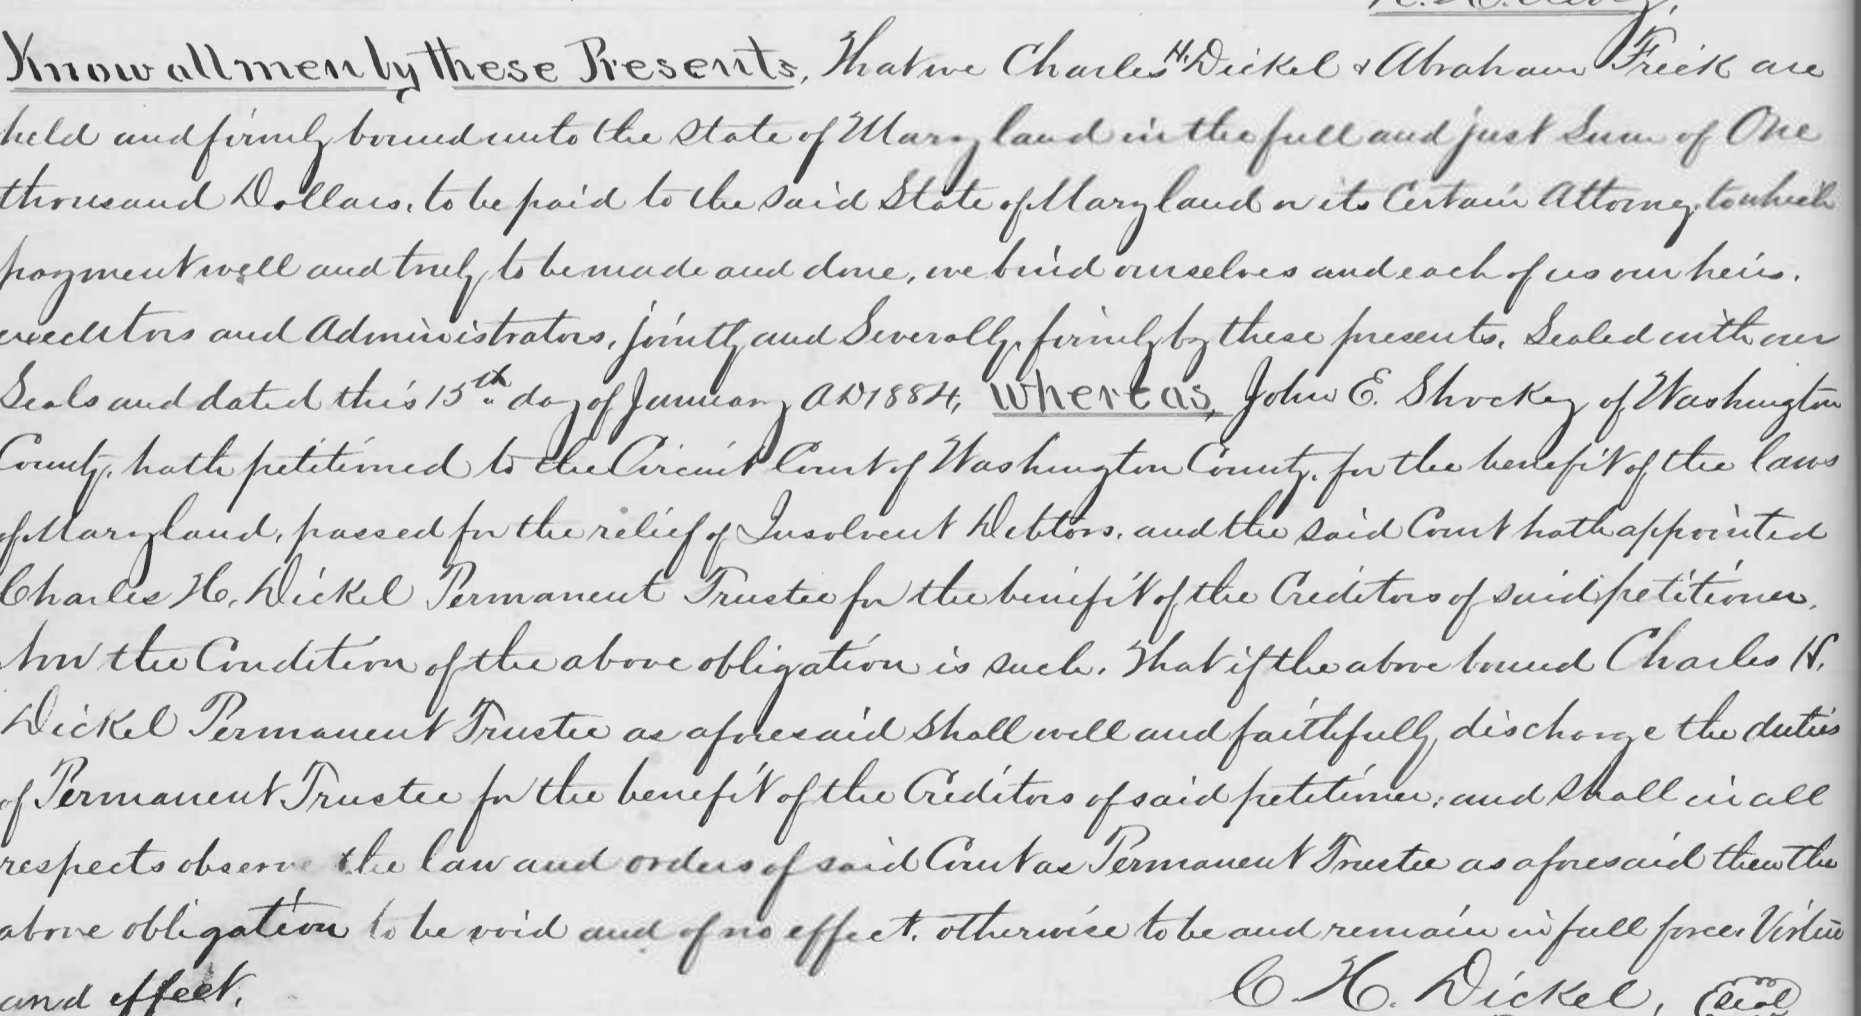 Know all men by these Presents, That we Charles H. Dickel & Abraham Frick are
held and firmly bound unto the State of Maryland in the full and just Sum of One
thousand Dollars, to be paid to the said State of Maryland or its Certain Attorney, to which
payment well and truly to be made and done, we bind ourselves and each of us our heirs,
executors and Administrators, jointly and Severally, firmly by these presents, Sealed with our
Seals and dated this 15th day of January AD 1884, Whereas, John E. Shockey of Washington
County, hath petitioned to the Circuit Court of Washington County, for the benefit of the laws
of Maryland, passed for the relief of Insolvent Debtors, and the said Court hath appointed
Charles H. Dickel Permanent Trustee for the benefit of the Creditors of said petitioner.
Now the Condition of the above obligation is such, That if the above bound Charles H.
Dickel Permanent Trustee as aforesaid shall well and faithfully discharge the duties
of Permanent Trustee for the benefit of the Creditors of said petitioner, and shall in all
respects observe the law and orders of said Court as Permanent Trustee as aforesaid then the
above obligation to be void and of no effect, otherwise to be and remain in full force Virtue
and effect.
C. H. Dickel, Seal